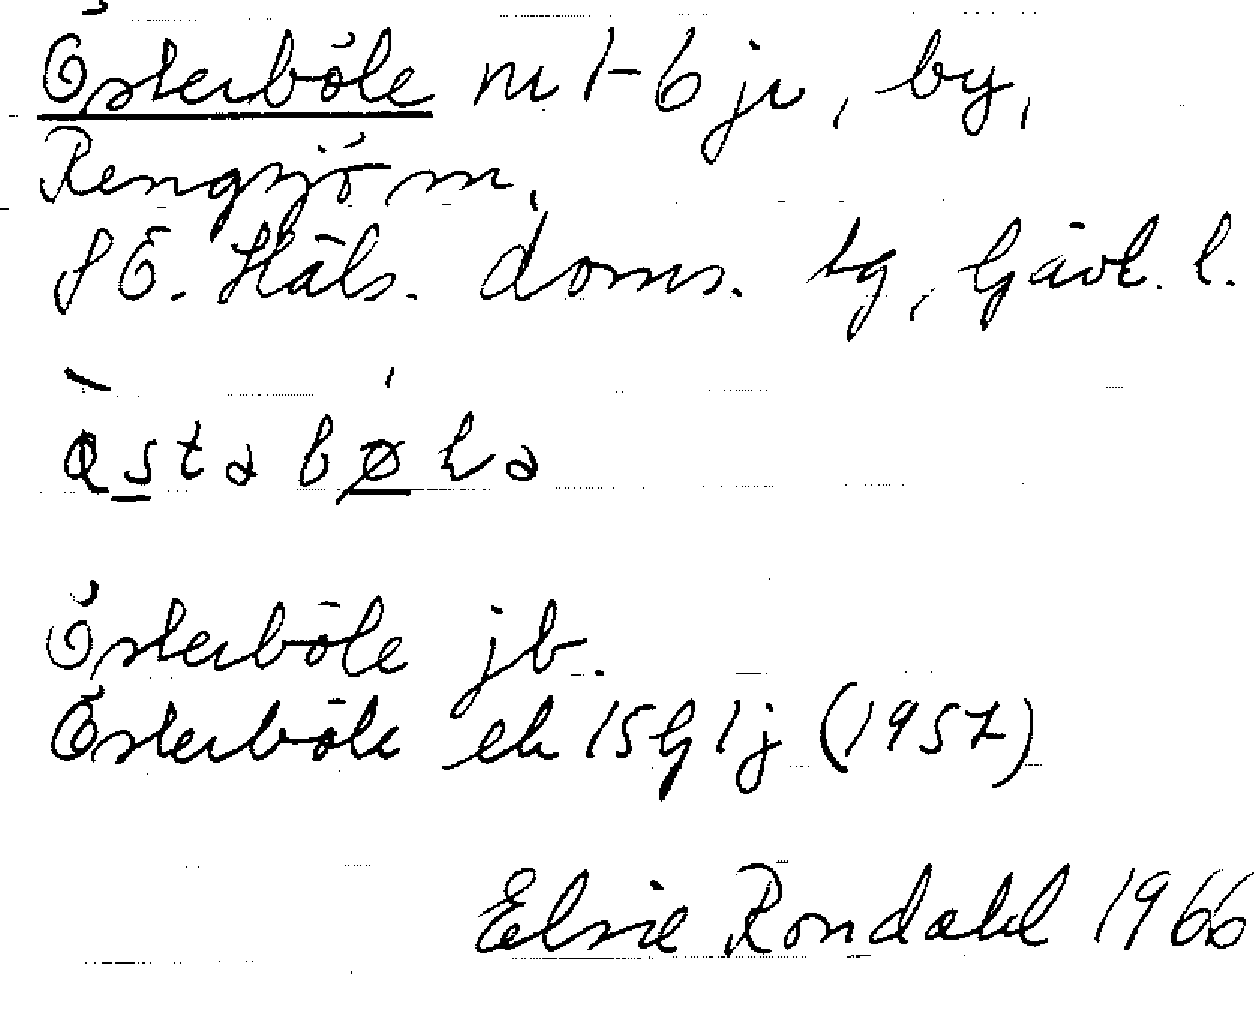 Österböle nr 1-6 jr, by,
Rengsjö sn,
SÖ. Häls. doms. tg, Gävl. l.
Österböle jb.
Österböle ek 15G1j (1957)
Elsie Rondahl 1966